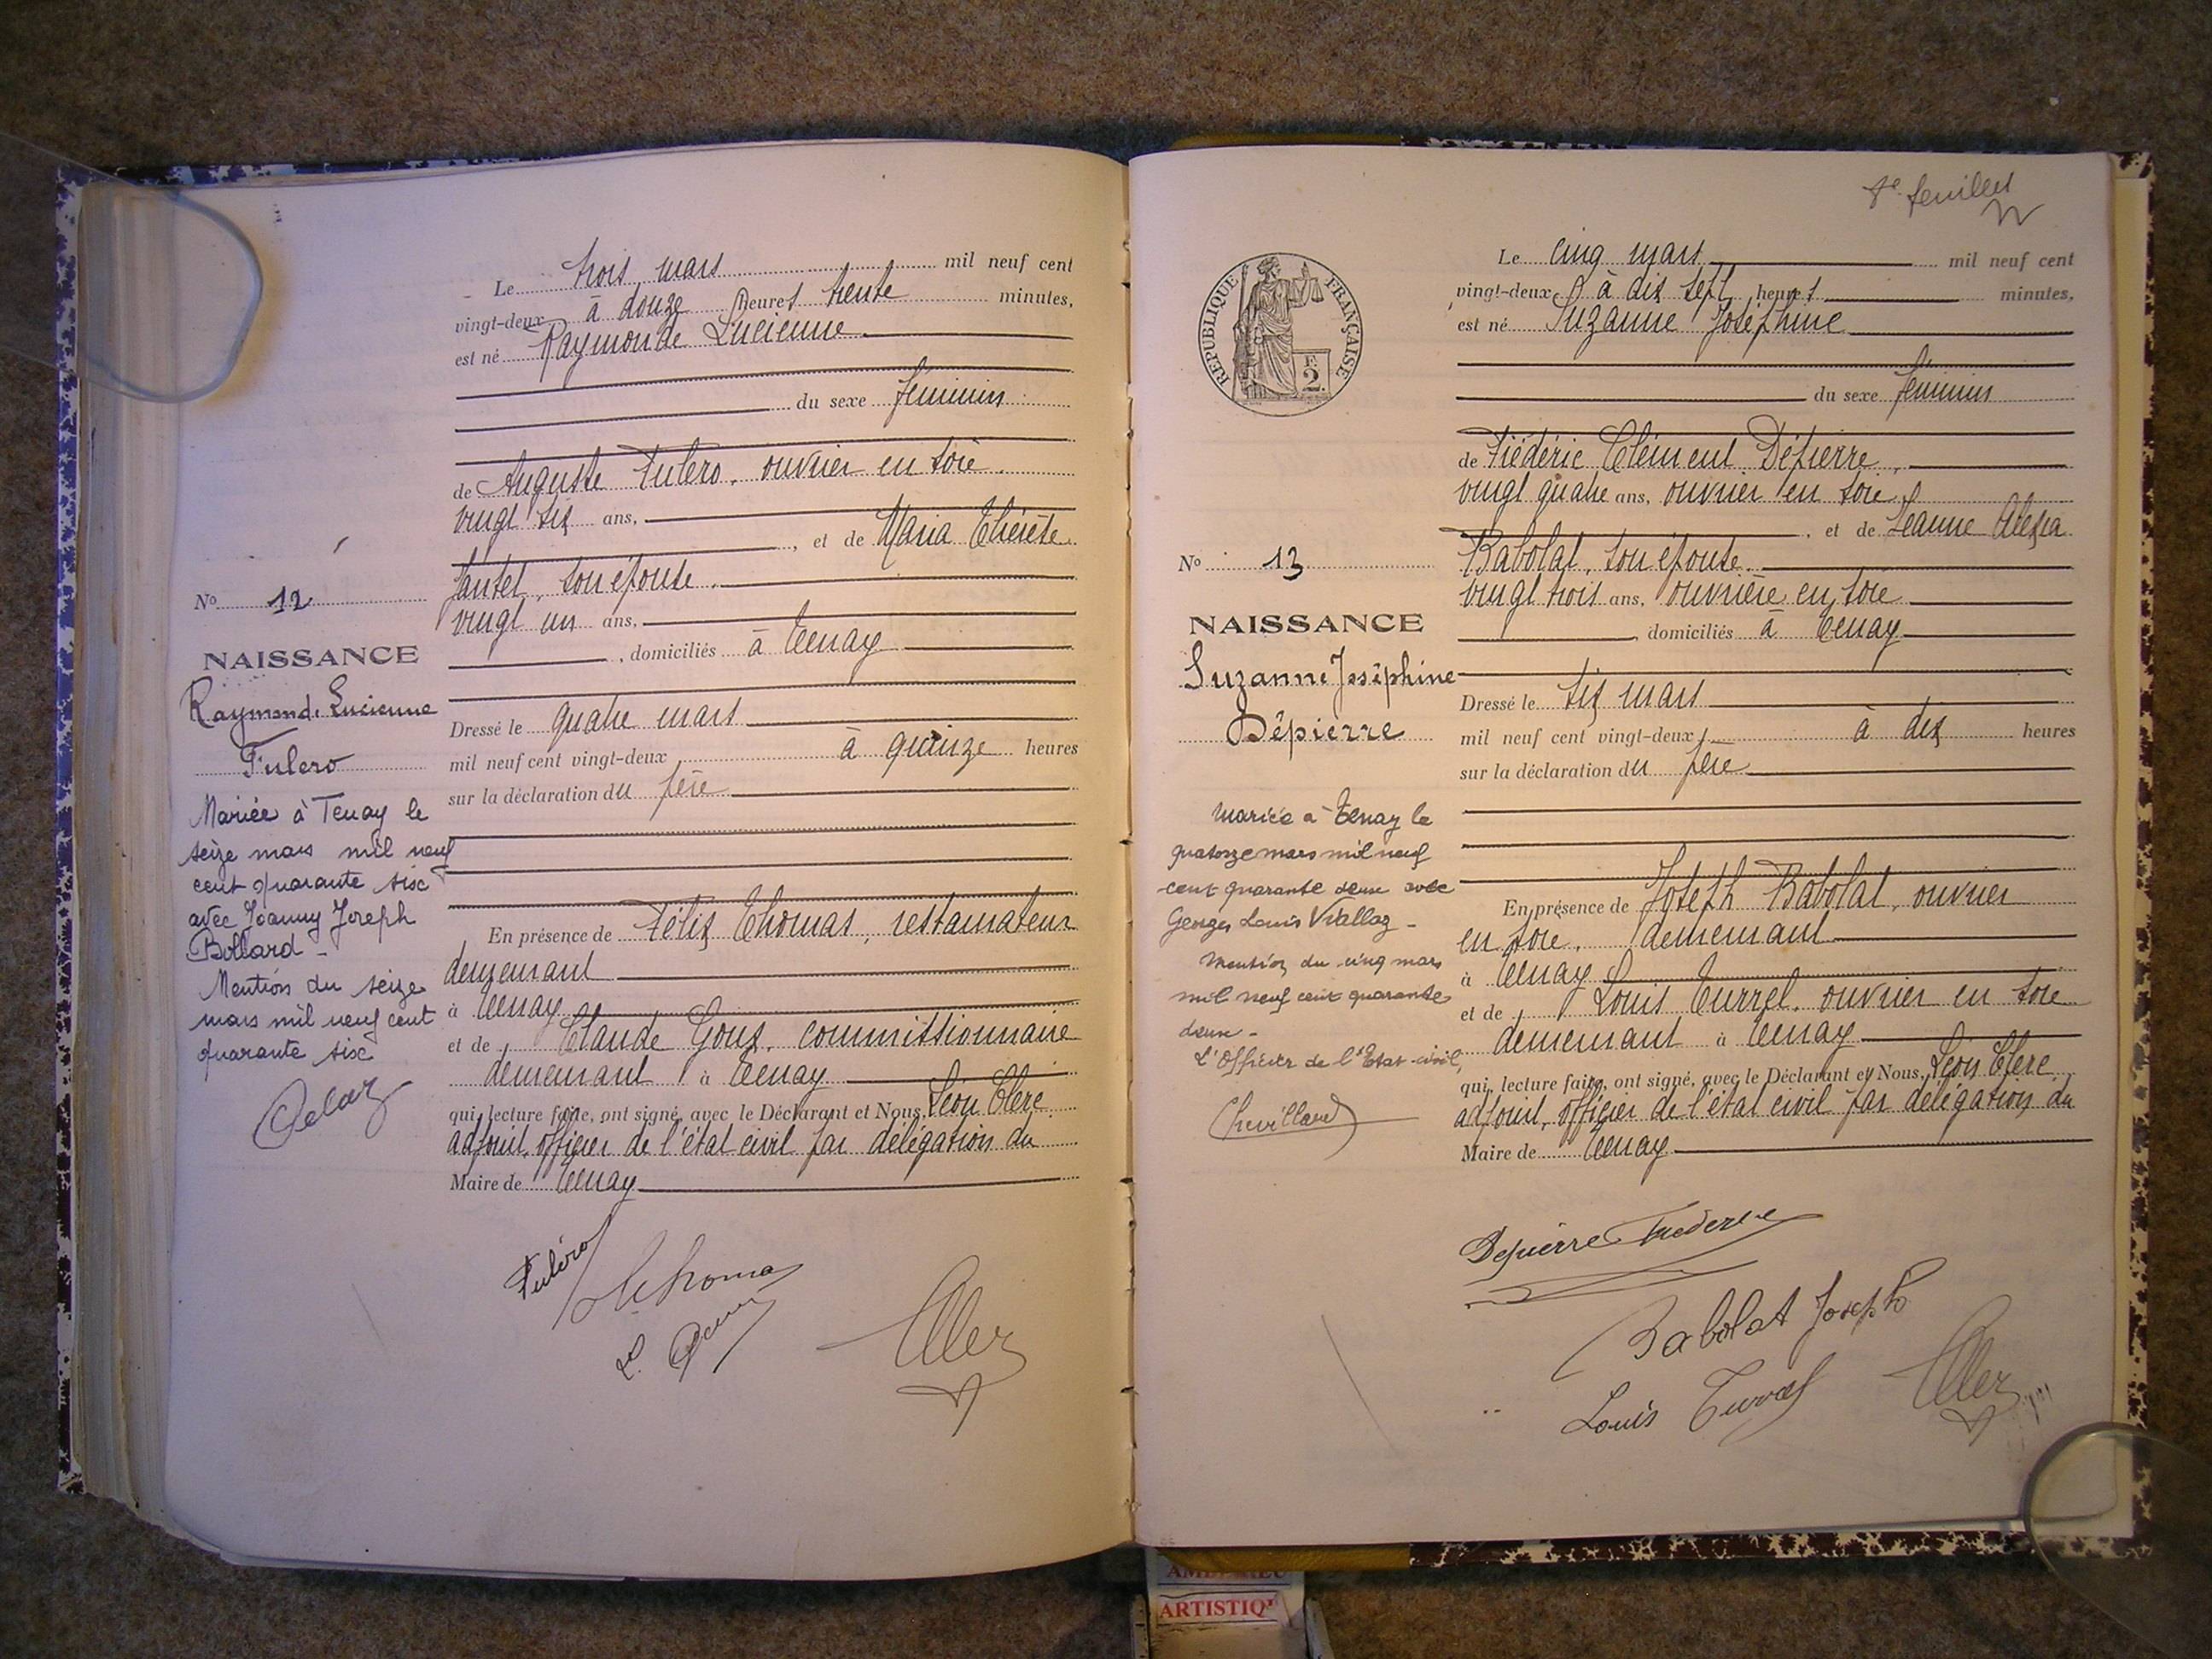 Le trois mars mil neuf cent
vingt-deux à douze heures trente minutes,
est né Raymonde Lucienne
du sexe féminin
de Auguste Fulero, ouvrier en soie
vingt six ans,
, et de Maria Thérèse
Jantet, son épouse.
vingt un ans,
, domiciliés à Tenay
Dressé le quatre mars
mil neuf cent vingt-deux à quinze heures
sur la déclaration du père
En présence de Félix Thomas, restaurateur
demeurant
à Tenay
et de Claude Goux, commissionnaire
demeurant à Tenay
qui, lecture faite, ont signé, avec le Déclarant et Nous, Léon Clerc
adjoint, officier de l'état civil par délégation du
Maire de Tenay
No 12
NAISSANCE
Raymonde Lucienne
Fulero
Mariée à Tenay le
seize mars mil neuf
cent quarante sisc
avec Joanny Joseph
Bollard -
Mention du seize
mars mil neuf cent
quarante sisc
Fuléro
Thomas
7e feuillet
REPUBLIQUE FRANÇAISE
2
Le cinq mars mil neuf cent
vingt-deux à dix sept heures minutes,
est né Suzanne Joséphine
du sexe féminin
de Frédéric Clément Dépierre,
vingt quatre ans, ouvrier en soie
, et de Jeanne Alexia
Babolat, son épouse.
vingt trois ans, ouvrière en soie
, domiciliés à Tenay
Dressé le six mars
mil neuf cent vingt-deux, à dix heures
sur la déclaration du père
En présence de Joseph Babolat, ouvrier
en soie, demeurant
à Tenay
et de Louis Turrel, ouvrier en soie
demeurant à Tenay
qui, lecture faite, ont signé, avec le Déclarant et Nous, Léon Clerc
adjoint, officier de l'état civil par délégation du
Maire de Tenay
No 13
NAISSANCE
Suzanne Joséphine
Dépierre
Mariée à Tenay le
quatorze mars mil neuf
cent quarante deux avec
Georges Louis Viallaz -
Mention du cinq mars
mil neuf cent quarante
deux -
L'Officier de l'Etat-civil,
Chevillard
Depierre Frederic
Babolat Joseph
Louis Turrel
ARTISTIQ